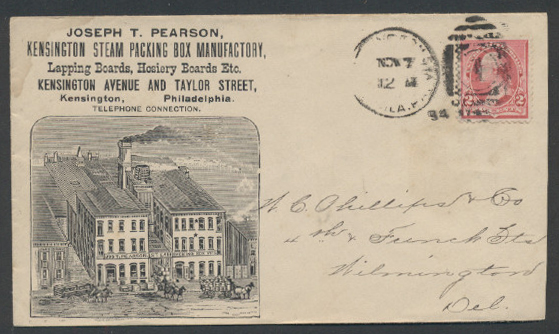 JOSEPH T. PEARSON,
KENSINGTON STEAM PACKING BOX MANUFACTORY,
Lapping Boards, Hosiery Boards Etc.
KENSINGTON AVENUE AND TAYLOR STREET,
Kensington, Philadelphia.
TELEPHONE CONNECTION.
NOV 7
12 M
PHILA. PA.
94
2
W. C. Phillips & Co
4th & French Sts
Wilmington
Del.